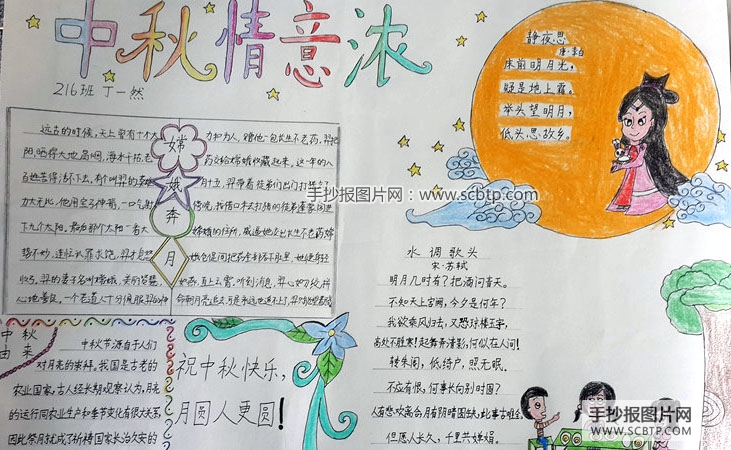 中秋情意浓
216班 丁一然
静夜思
唐·李白
床前明月光,
疑是地上霜。
举头望明月,
低头思故乡。
嫦娥奔月
远古的时候,天上曾有十个太
阳,晒得大地 海水干枯,老
百姓苦得活不下去。有个叫羿的英雄
力大无比,他用宝弓神箭,一口气射
下九个太阳。最后那个太阳一看大
势不妙,连忙认罪求饶,羿才息怒
收弓。羿的妻子名叫嫦娥,美丽贤慧,
心地善良。一个老道人十分佩服羿的神
力和为人,赠他一包长生不老药,羿把
药交给嫦娥收藏起来,这一年八
月十五,羿带着徒弟们出门打猎去了
傍晚,找借口未去打猎的徒弟逢蒙闯进
嫦娥的住所,威逼她交出长生不老药嫦
娥仓促间把药全部吞下肚里,她便身轻
如燕,直上云霄。听到消息,羿心如刀绞拼
命朝月亮追去,可是永远也追不上了,
手抄报图片网:www.scbtp.com
水调歌头
宋·苏轼
明月几时有?把酒问青天。
不知天上宫阙,今夕是何年?
我欲乘风归去,又恐琼楼玉宇,
高处不胜寒!起舞弄清影,何似在人间!
转朱阁,低绮户,照无眠。
不应有恨,何事长向别时圆?
人有悲欢离合,月有阴晴圆缺,此事古难全。
但愿人长久,千里共婵娟。
中秋由来
中秋节源自于人们
对月亮的崇拜。我国是古老的
农业国家,古人经长期观察认为,月亮
的运行同农业生产和季节变化有很大关系,
因此祭月就成了祈祷国家长治久安的
祝中秋快乐,
月圆人更圆!
手抄报图片网
WWW.SCBTP.COM